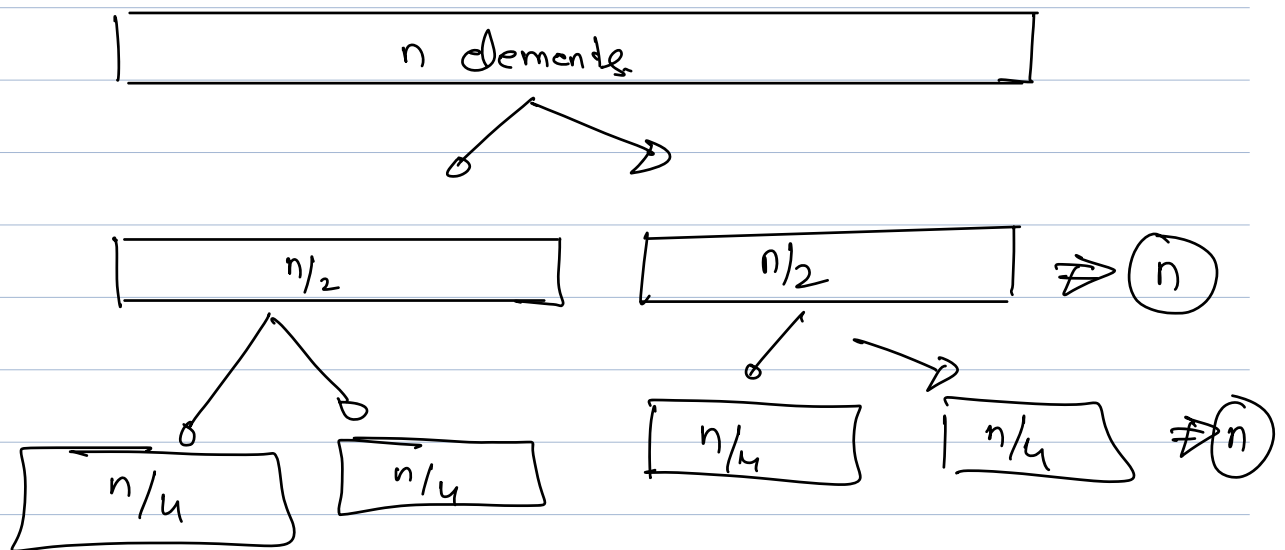 n elements
n/2 n/2 ⇒ n
n/4 n/4 n/4 n/4 ⇒ n